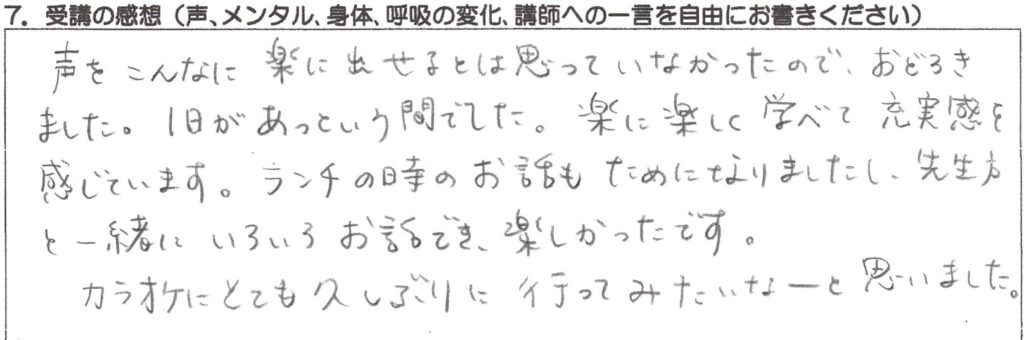 7. 受講の感想（声、メンタル、身体、呼吸の変化、講師への一言を自由にお書きください）
声をこんなに楽に出せるとは思っていなかったので、おどろき
ました。1日があっという間でした。楽に楽しく学べて充実感を
感じています。ランチの時のお話もためになりましたし、先生方
と一緒にいろいろお話でき、楽しかったです。
カラオケにとても久しぶりに行ってみたいなーと思いました。